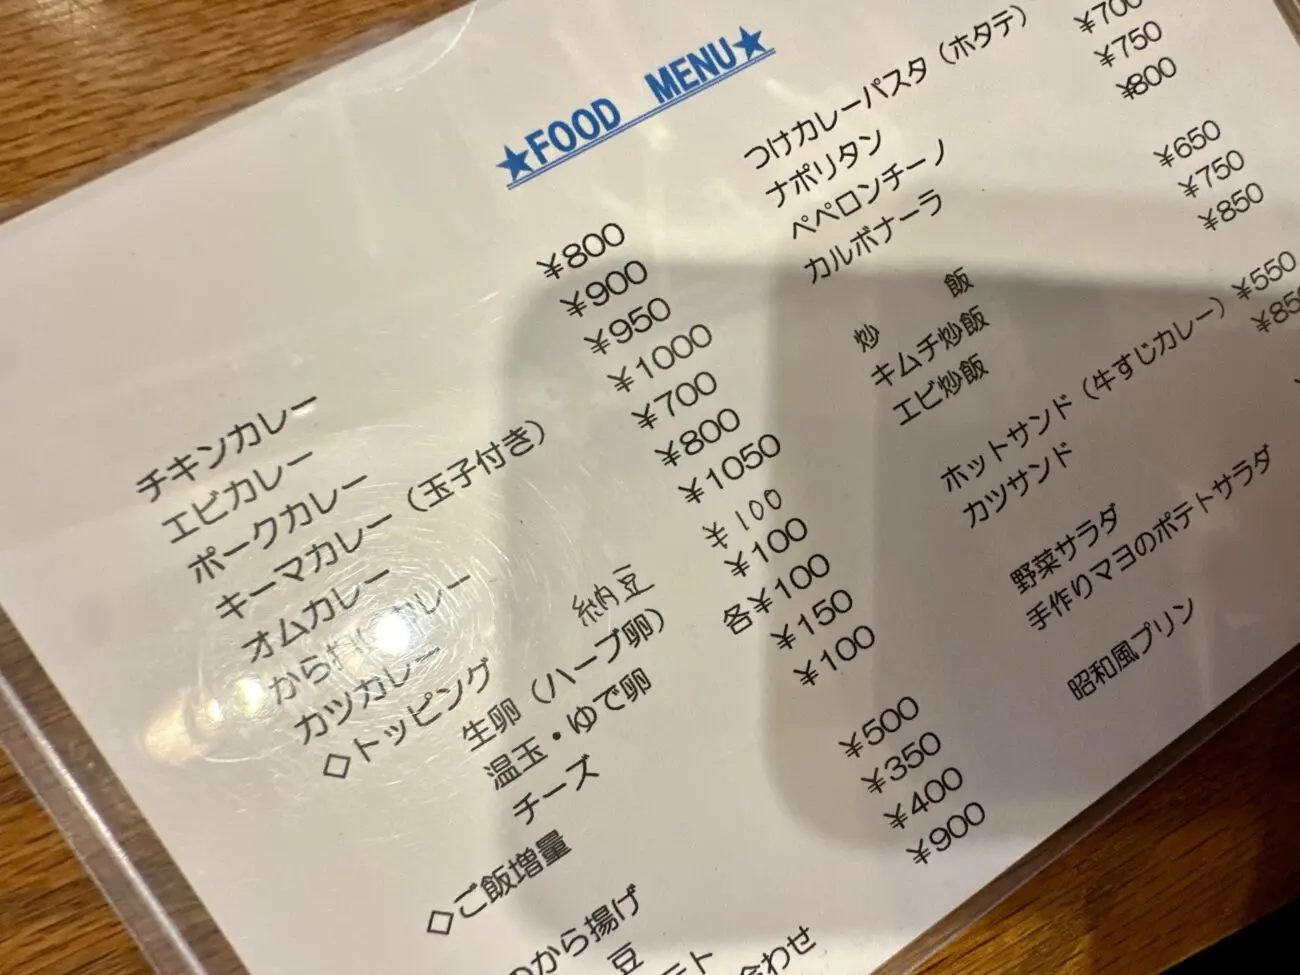 ★FOOD MENU★
チキンカレー ¥800
エビカレー ¥900
ポークカレー ¥950
キーマカレー（玉子付き） ¥1000
オムカレー ¥700
から レー ¥800
カツカレー ¥1050
◇トッピング 納豆 ¥100
生卵（ハーブ卵） ¥100
温玉・ゆで卵 各¥100
チーズ ¥150
◇ご飯増量 ¥100
のから揚げ ¥500
豆 ¥350
テト ¥400
合わせ ¥900
つけカレーパスタ（ホタテ）
ナポリタン ¥700
ペペロンチーノ ¥750
カルボナーラ ¥800
炒飯 ¥650
キムチ炒飯 ¥750
エビ炒飯 ¥850
ホットサンド（牛すじカレー） ¥550
カツサンド ¥850
野菜サラダ
手作りマヨのポテトサラダ
昭和風プリン